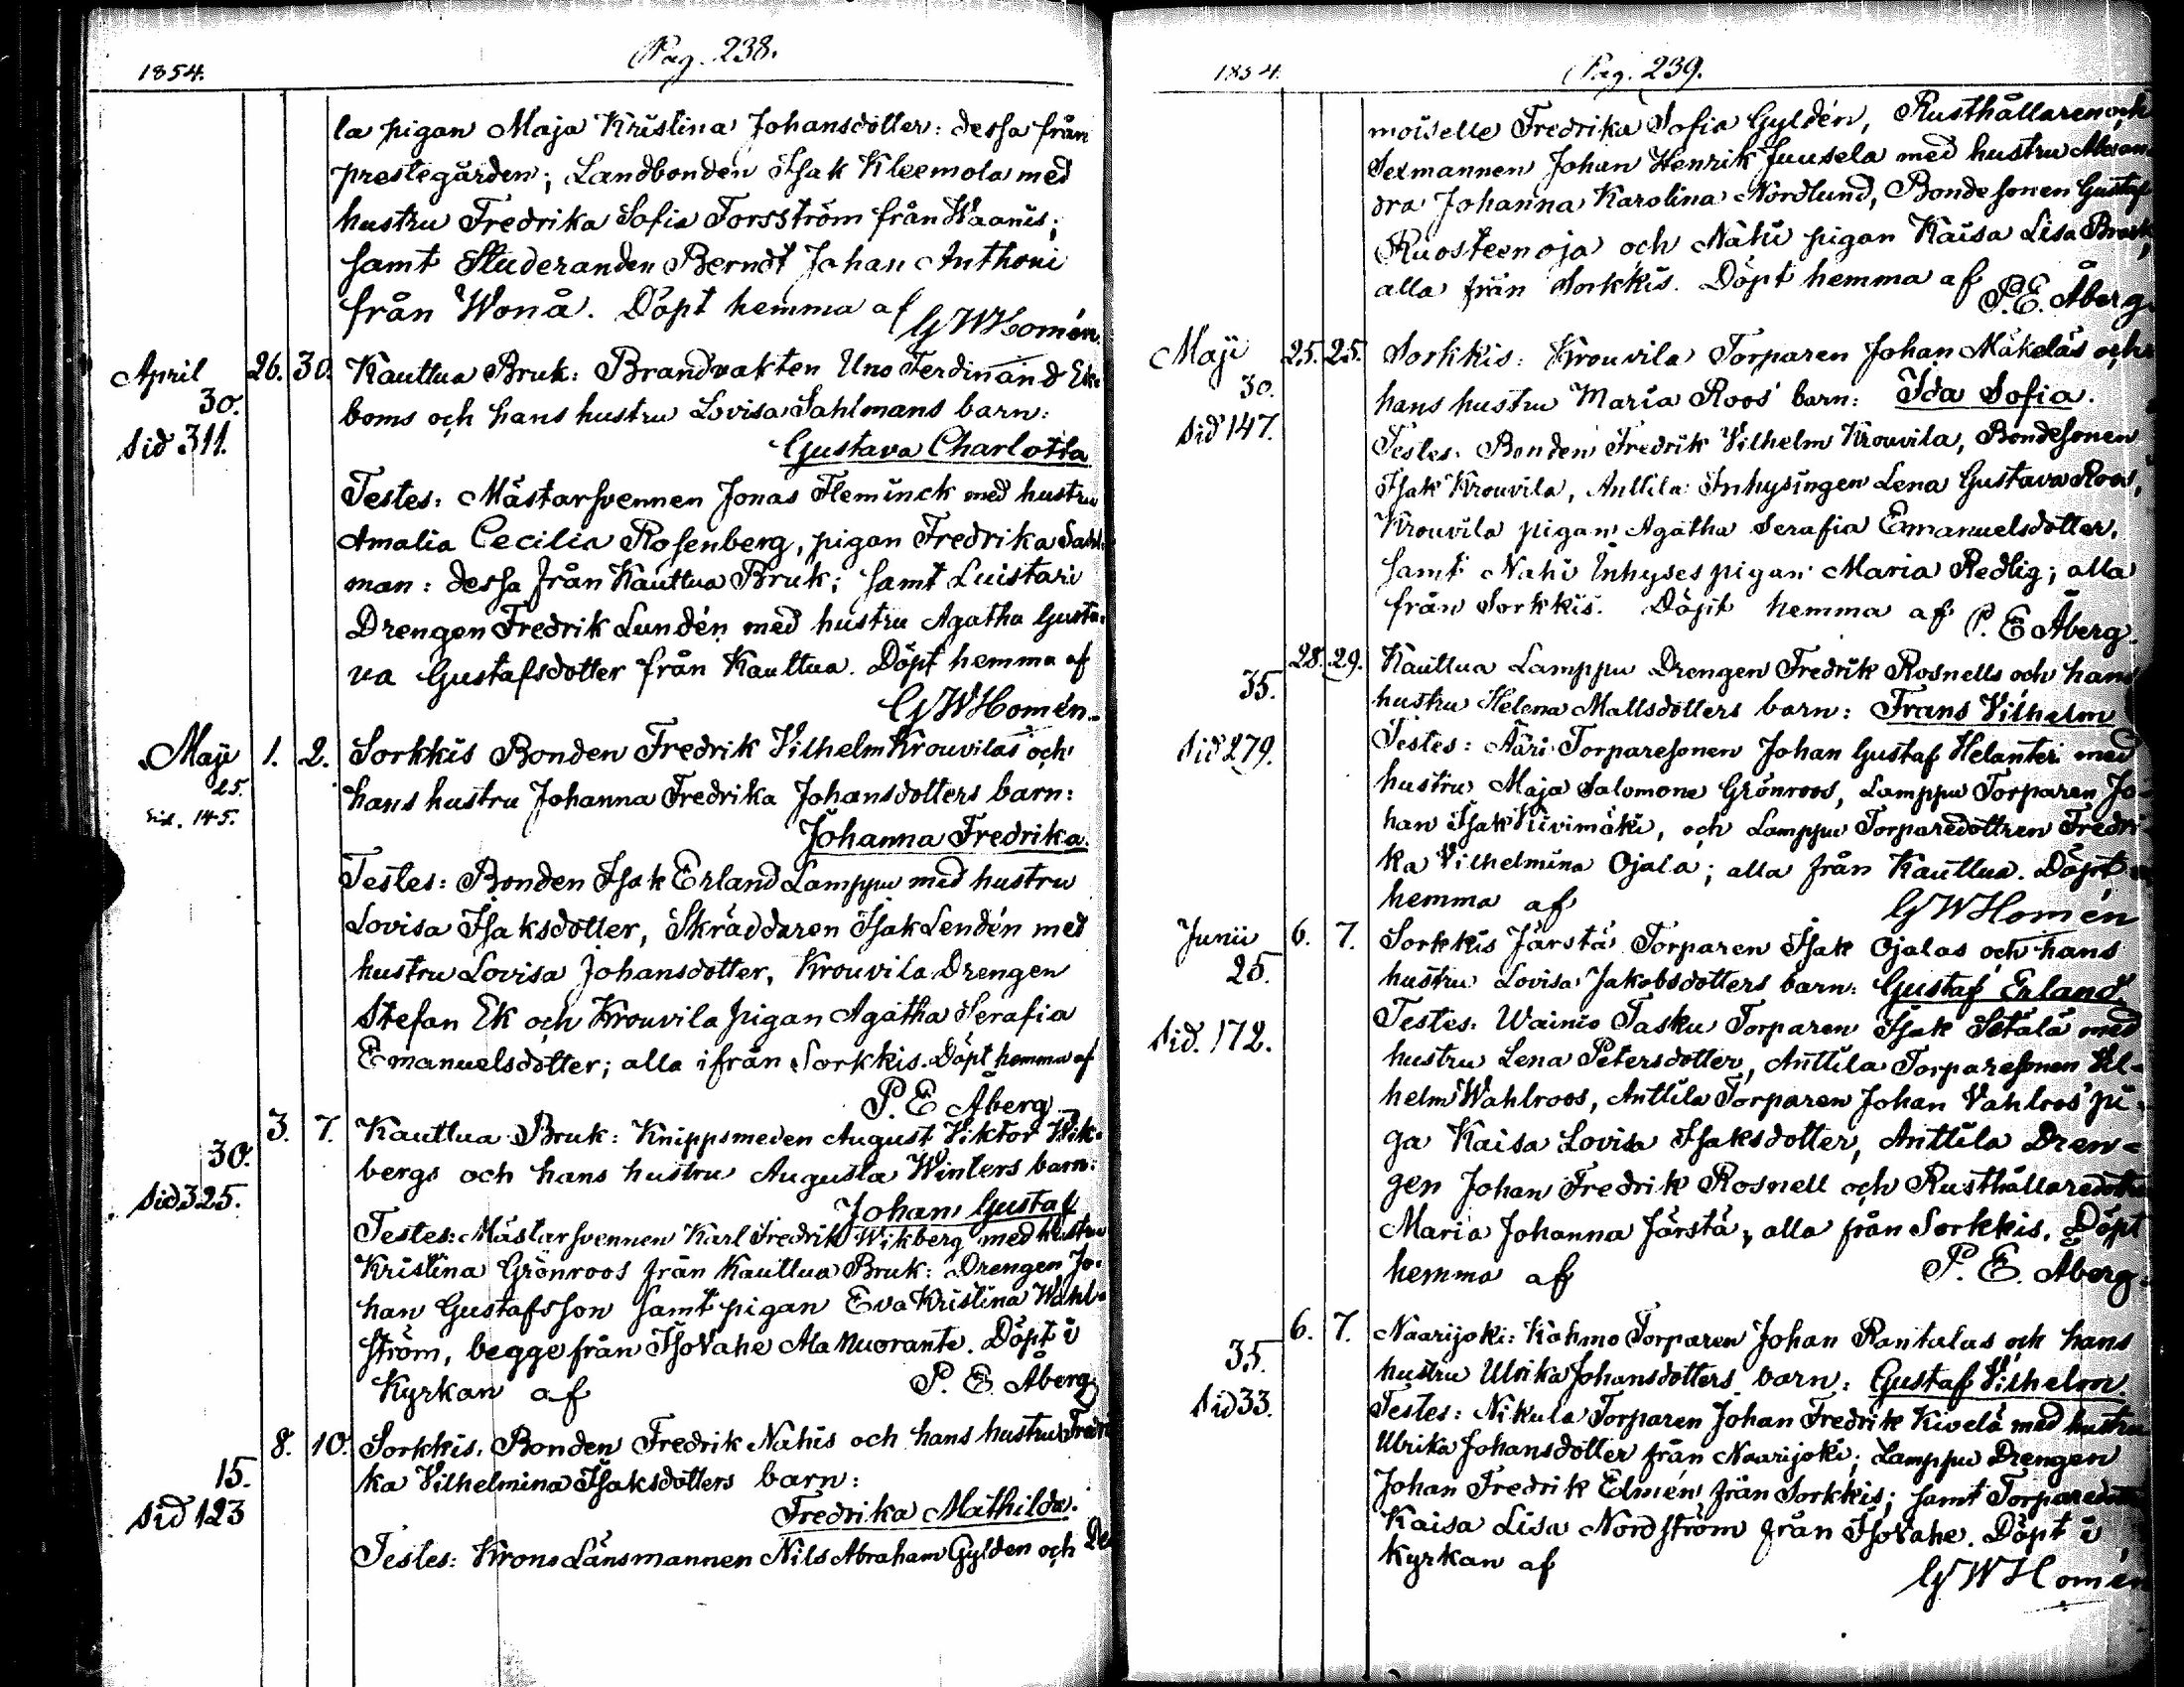 1854.
Pag. 238.
la pigan Maja Kristina Johansdotter: dessa från
prestegården; Landbonden Isak Kleemola med
hustru Fredrika Sofia Forsström från Waanis;
samt Studeranden Berndt Johan Anthoni
från Wonå. Döpt hemma af
GWHomén.
April 26. 30. Kauttua Bruk: Brandvakten Uno Ferdinand Ek-
30. boms och hans hustru Lovisa Sahlmans barn:
Sid 311.
Gustava Charlotta
Testes: Mästarsvennen Jonas Fleminck med hustru
Amalia Cecilia Rosenberg, pigan Fredrika Sahl-
man: dessa från Kauttua Bruk; samt Luistari
Drengen Fredrik Lundén med hustru Agatha Gusta-
va Gustafsdotter från Kauttua. Döpt hemma af
GWHomén.
Maji 1. 2. Sorkkis Bonden Fredrik Vilhelm Krouvilas och
25. hans hustru Johanna Fredrika Johansdotters barn:
Sid. 145.
Johanna Fredrika.
Testes: Bonden Isak Erland Lamppu med hustru
Lovisa Isaksdotter, Skräddaren Isak Lendén med
hustru Lovisa Johansdotter, Krouvila Drengen
Stefan Ek och Krouvila pigan Agatha Serafia
Emanuelsdotter; alla ifrån Sorkkis. Döpt hemma af
P. E Åberg
3. 7. Kauttua Bruk: Knippsmeden August Viktor Wik-
30. bergs och hans hustru Augusta Winters barn:
Sid 325.
Johan Gustaf
Testes: Mästarsvennen Karl Fredrik Wikberg med hustru
Kristina Grönroos från Kauttua Bruk: Drengen Jo-
han Gustafsson samt pigan Eva Kristina Wahl-
ström, begge från IsoVahe Ala Nuorante. Döpt i
Kyrkan af P. E. Åberg
8. 10. Sorkkis. Bonden Fredrik Nahis och hans hustru Fredri
15. ka Vilhelmina Isaksdotters barn:
Sid 123
Fredrika Mathilda.
Testes: Krono Länsmannen Nils Abraham Gylden och De
1854.
Pag. 239.
moiselle Fredrika Sofia Gyldén, Rusthållaren och
Sexmannen Johan Henrik Juusela med hustru Alexan-
dra Johanna Karolina Nordlund, Bondesonen Gustaf
Ruosteenoja och Nahi pigan Kaisa Lisa
alla från Sorkkis. Döpt hemma af
P. E. Åberg.
Maji 25. 25. Sorkkis: Krouvila Torparen Johan Mäkeläs och
30. hans hustru Maria Roos' barn: Ida Sofia.
Sid 147.
Testes: Bonden Fredrik Vilhelm Krouvila, Bondesonen
Isak Krouvila, Anttila Inhysingen Lena Gustava Roos,
Krouvila pigan Agatha Serafia Emanuelsdotter,
samt Nahi Inhyses pigan Maria Redlig; alla
från Sorkkis. Döpt hemma af P. E Åberg.
28. 29. Kauttua Lamppu Drengen Fredrik Rosnells och hans
35. hustru Helena Mattsdotters barn: Frans Vilhelm
Sid 279.
Testes: Ääri Torparesonen Johan Gustaf Helanteri med
hustru Maja Salomone Grönroos, Lamppu Torparen Jo-
han Isak Kivimäki, och Lamppu Torparedottren Fredri-
ka Vilhelmina Ojala; alla från Kauttua. Döpt
hemma af GWHomén
Junii 6. 7. Sorkkis Järstä Torparen Isak Ojalas och hans
25. hustru Lovisa Jakobsdotters barn: Gustaf Erland.
Sid. 172.
Testes: Wainio Tasku Torparen Isak Setälä med
hustru Lena Petersdotter, Anttila Torparesonen Vil-
helm Wahlroos, Anttila Torparen Johan Vahlroos' pi-
ga Kaisa Lovisa Isaksdotter, Anttila Dren-
gen Johan Fredrik Rosnell och Rusthållaredottren
Maria Johanna Järstä, alla från Sorkkis. Döpt
hemma af P. E. Åberg.
6. 7. Naarijoki: Kahmo Torparen Johan Rantalas och hans
35. hustru Ulrika Johansdotters barn: Gustaf Vilhelm.
Sid 33.
Testes: Nikula Torparen Johan Fredrik Kivelä med hustru
Ulrika Johansdotter från Naarijoki; Lamppu Drengen
Johan Fredrik Elmén från Sorkkis; samt
Kaisa Lisa Nordström från IsoVahe. Döpt i
kyrkan af
GWHomén